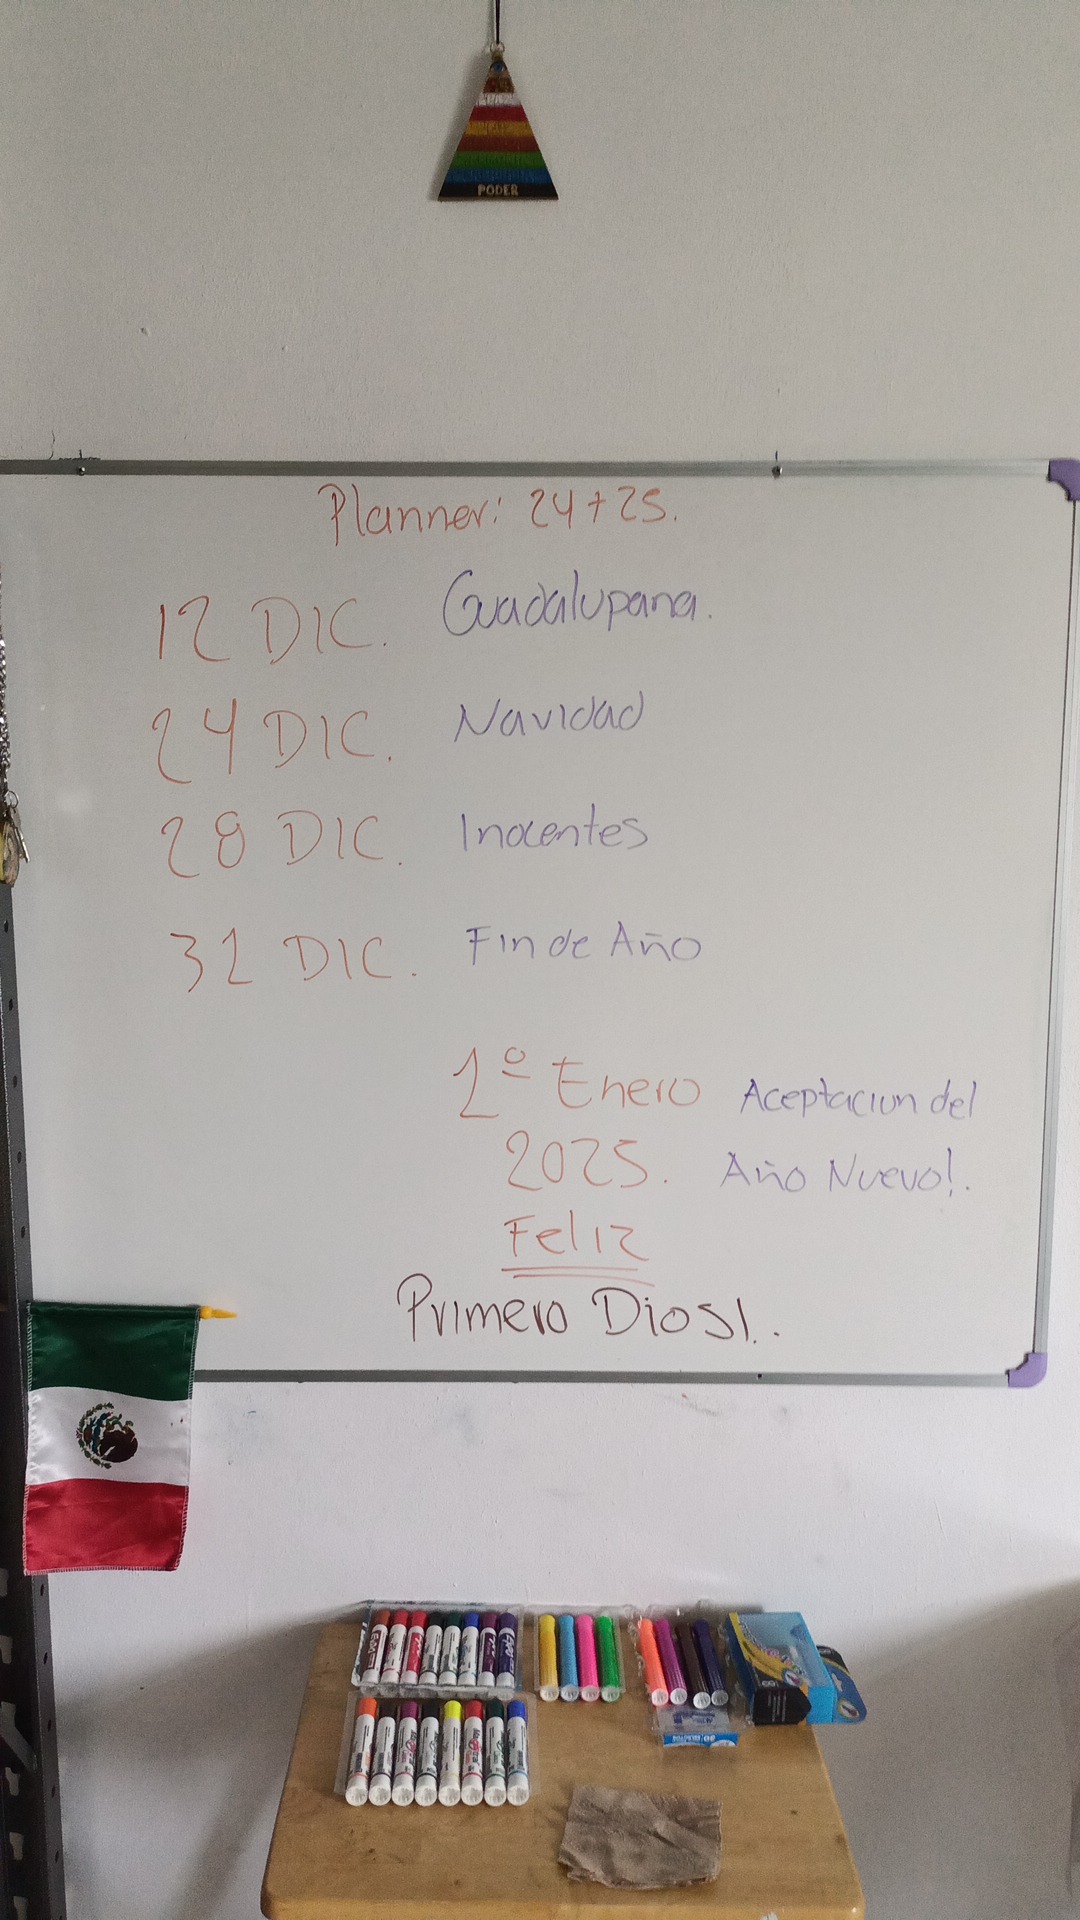 PODER
Planner: 24+25.
12 DIC. Guadalupana.
24 DIC. Navidad
28 DIC. Inocentes
31 DIC. Fin de Año
1º Enero Aceptacion del
2025. Año Nuevo!.
Feliz
Primero Dios!..
EXPO